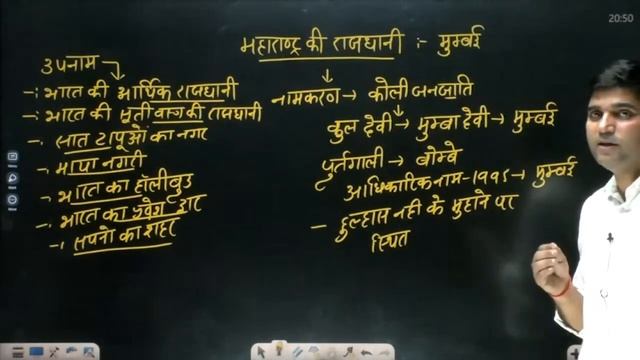 20:50
महाराष्ट्र की राजधानी :- मुम्बई
उपनाम
-: भारत की आर्थिक राजधानी
-: भारत की सूती वस्त्र की राजधानी
-: सात टापूओं का नगर
-: माया नगरी
-: भारत का हॉलीवुड
-: भारत का प्रवेश द्वार
-: सपनो का शहर
नामकरण → कोली जनजाति
कुल देवी → मुम्बा देवी → मुम्बई
पुर्तगाली → बोम्बे
आधिकारिक नाम - 1995 → मुम्बई
- उल्हास नदी के मुहाने पर
स्थित